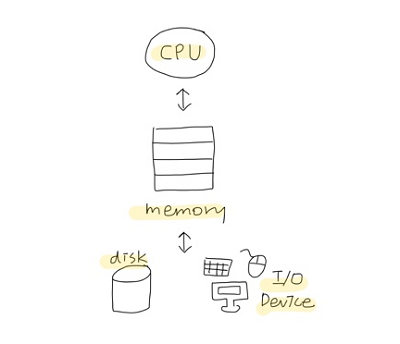 CPU
memory
disk
I/O
Device